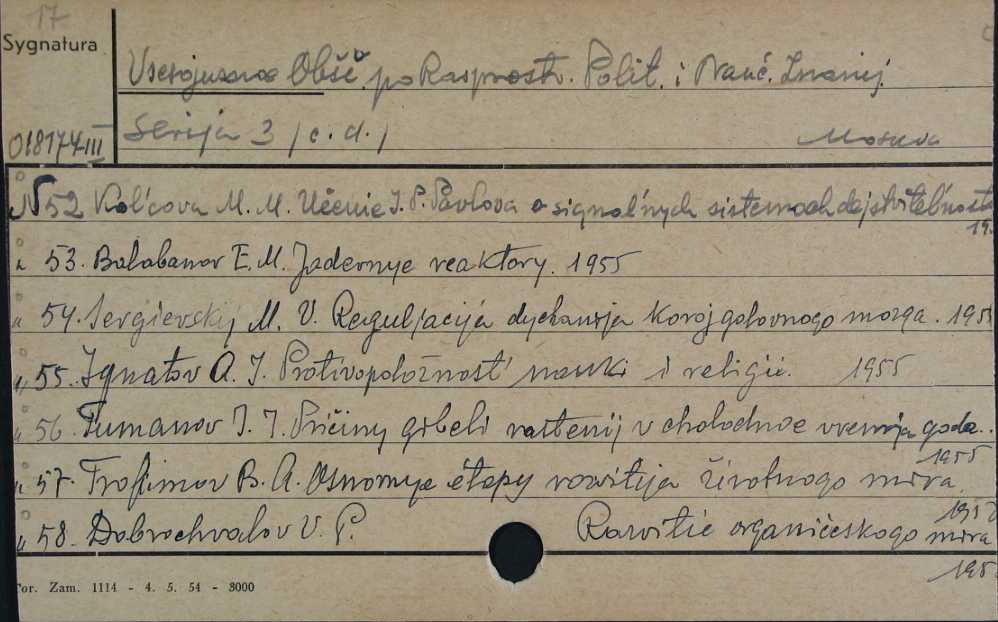 17
Sygnatura
Vsesojuznoe Obšč. po Rasprostr. Polit. i Nauč. Znanij.
018174 III
Serija 3 /c. d./ Moskva
N 52 Kol'cova M. M. Učenie I. P. Pavlova o signal'nych sistemach dejstvitel'nosti
19
" 53. Balabanov E. M. Jadernye reaktory. 1955
" 54. Sergievskij M. V. Reguljacija dychanija koroj golovnogo mozga. 195
" 55. Ignatov A. I. Protivopoložnost' nauki i religii. 1955
" 56. Tumanov I. I. Pričiny gibeli rastenij v cholodnoe vremja goda.
1955
" 57. Trofimov B. A. Osnovnye ètapy razvitija životnogo mira.
195
" 58. Dobrochvalov V. P. Razvitie organičeskogo mira
195
or. Zam. 1114 - 4. 5. 54 - 3000